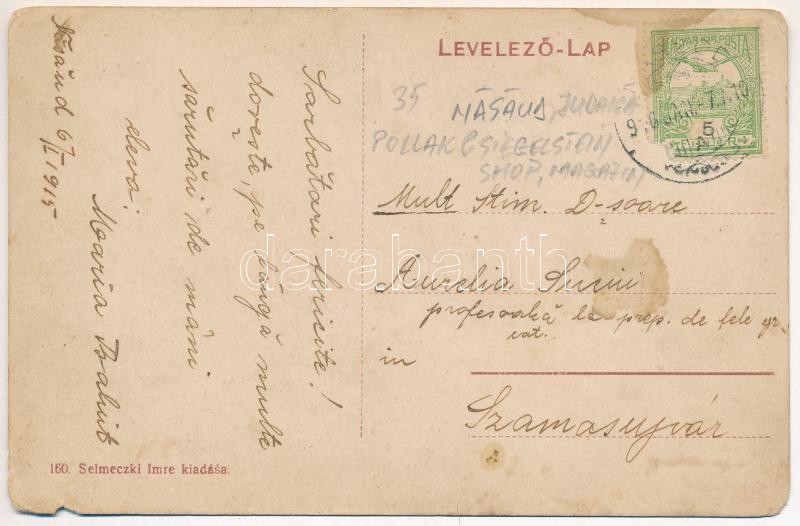 LEVELEZŐ-LAP
MAGYAR KIR. POSTA
5
35 NĂSĂUD, JUDAIKA
POLLAK & SIEGELSTEIN
SHOP, MAGAZIN
Năsăud 6/I 1915
Sarbători fericite!
dorește, pe lângă multe
sărutări de mâni
eleva:
Maria
Mult Stim. D-șoare
Aurelia Suciu
profesoară la prep. de fete gr.
cat.
in
Szamosujvár
160. Selmeczki Imre kiadása.
darabanth